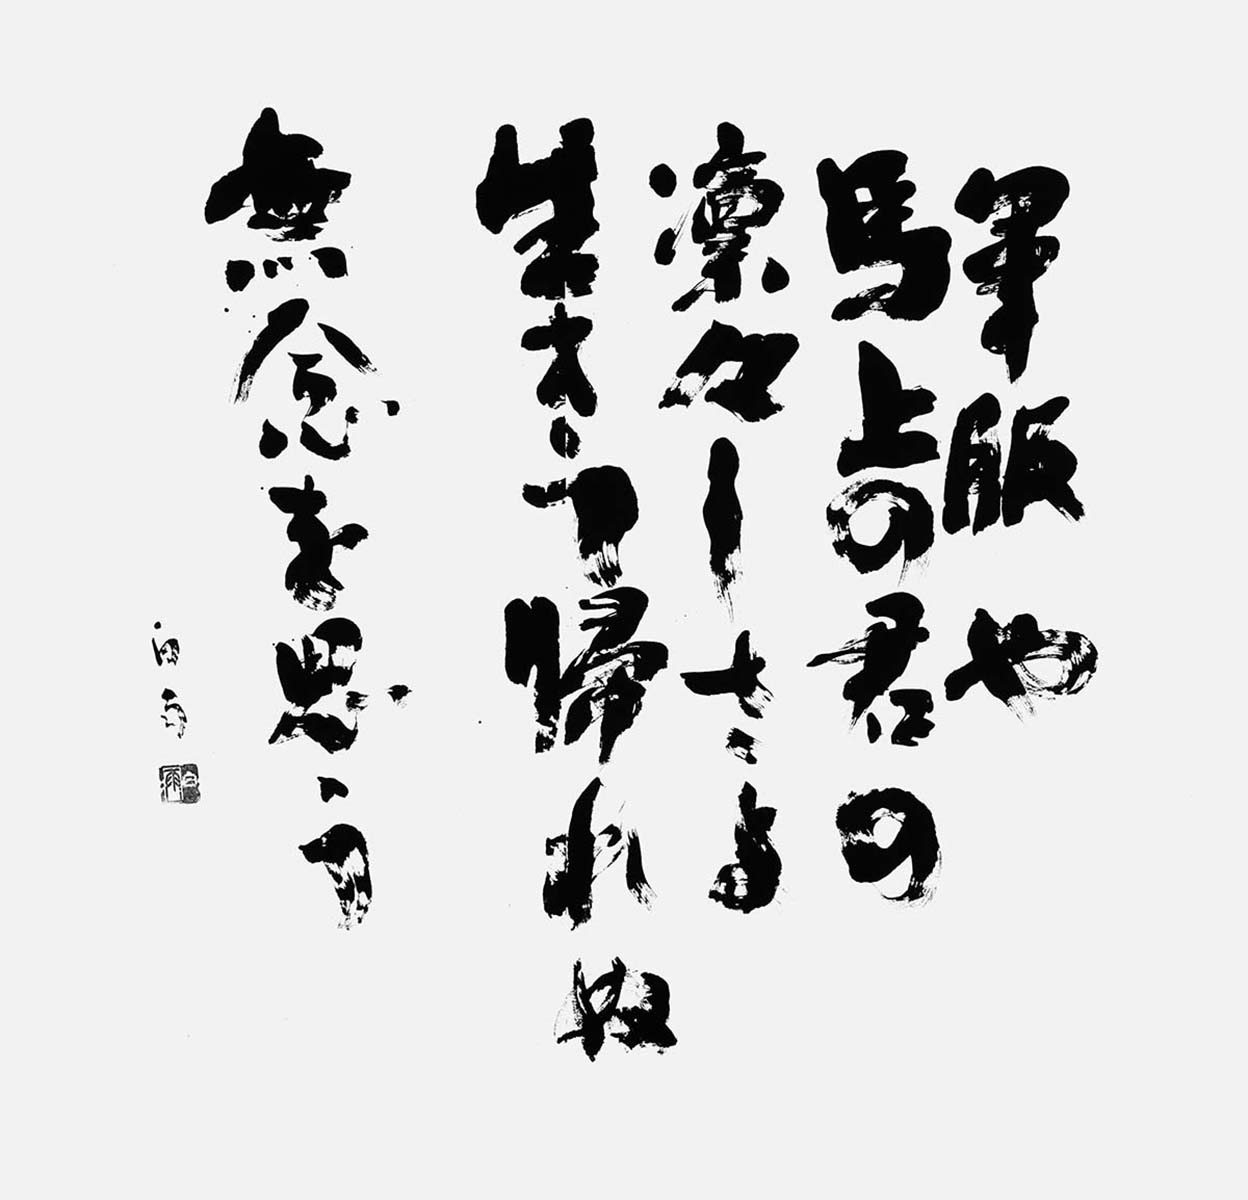 軍服や
馬上の君の
凛々しさよ
生きて帰れぬ
無念を思う
白雨